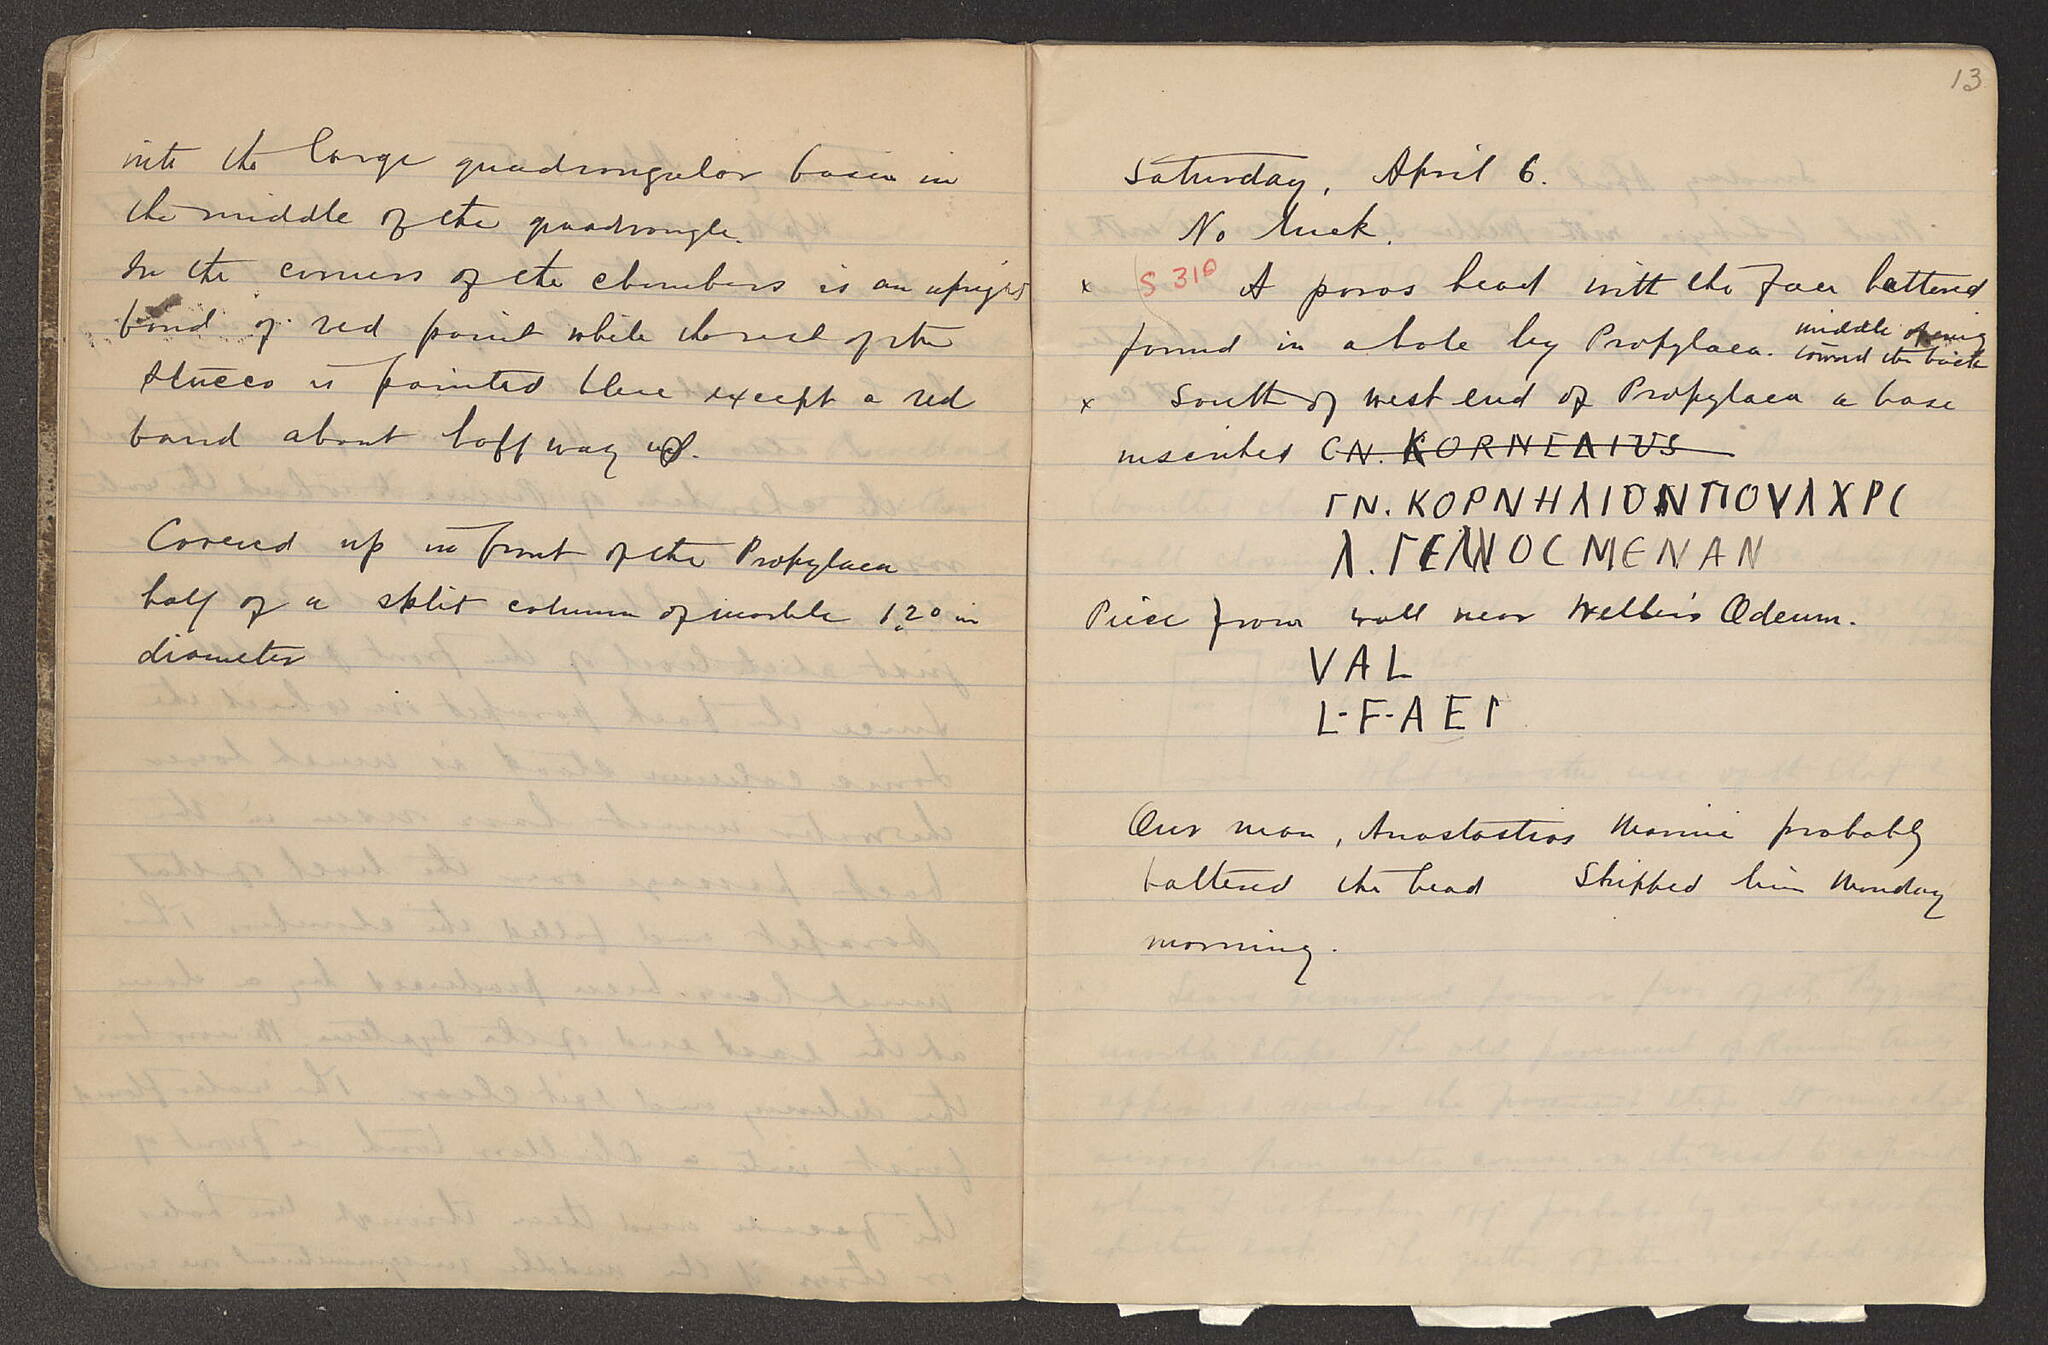 into the large quadrangular basin in
the middle of the quadrangle.
In the corners of the chambers is an upright
band of red paint while the rest of the
stucco is painted blue except a red
band about half way up.
Covered up in front of the Propylaea
half of a split column of marble 1.20 in
diameter
13
Saturday, April 6.
No luck.
x S 310 A poros head with the face battered
found in a hole by Propylaea. middle opening
toward the back
x South of west end of Propylaea a base
inscribed CN. KORNEΛIUS
ΓΝ. ΚΟΡΝΗΛΙΟΝ ΠΟΥΛΧΡC
Λ. ΓΕΛΛΙΟC ΜΕΝΑΝ
Piece from wall near Weller's Odeum.
VAL
L-F-AEΓ
Our man, Anastasios probably
battered the head Skipped him Monday
morning.